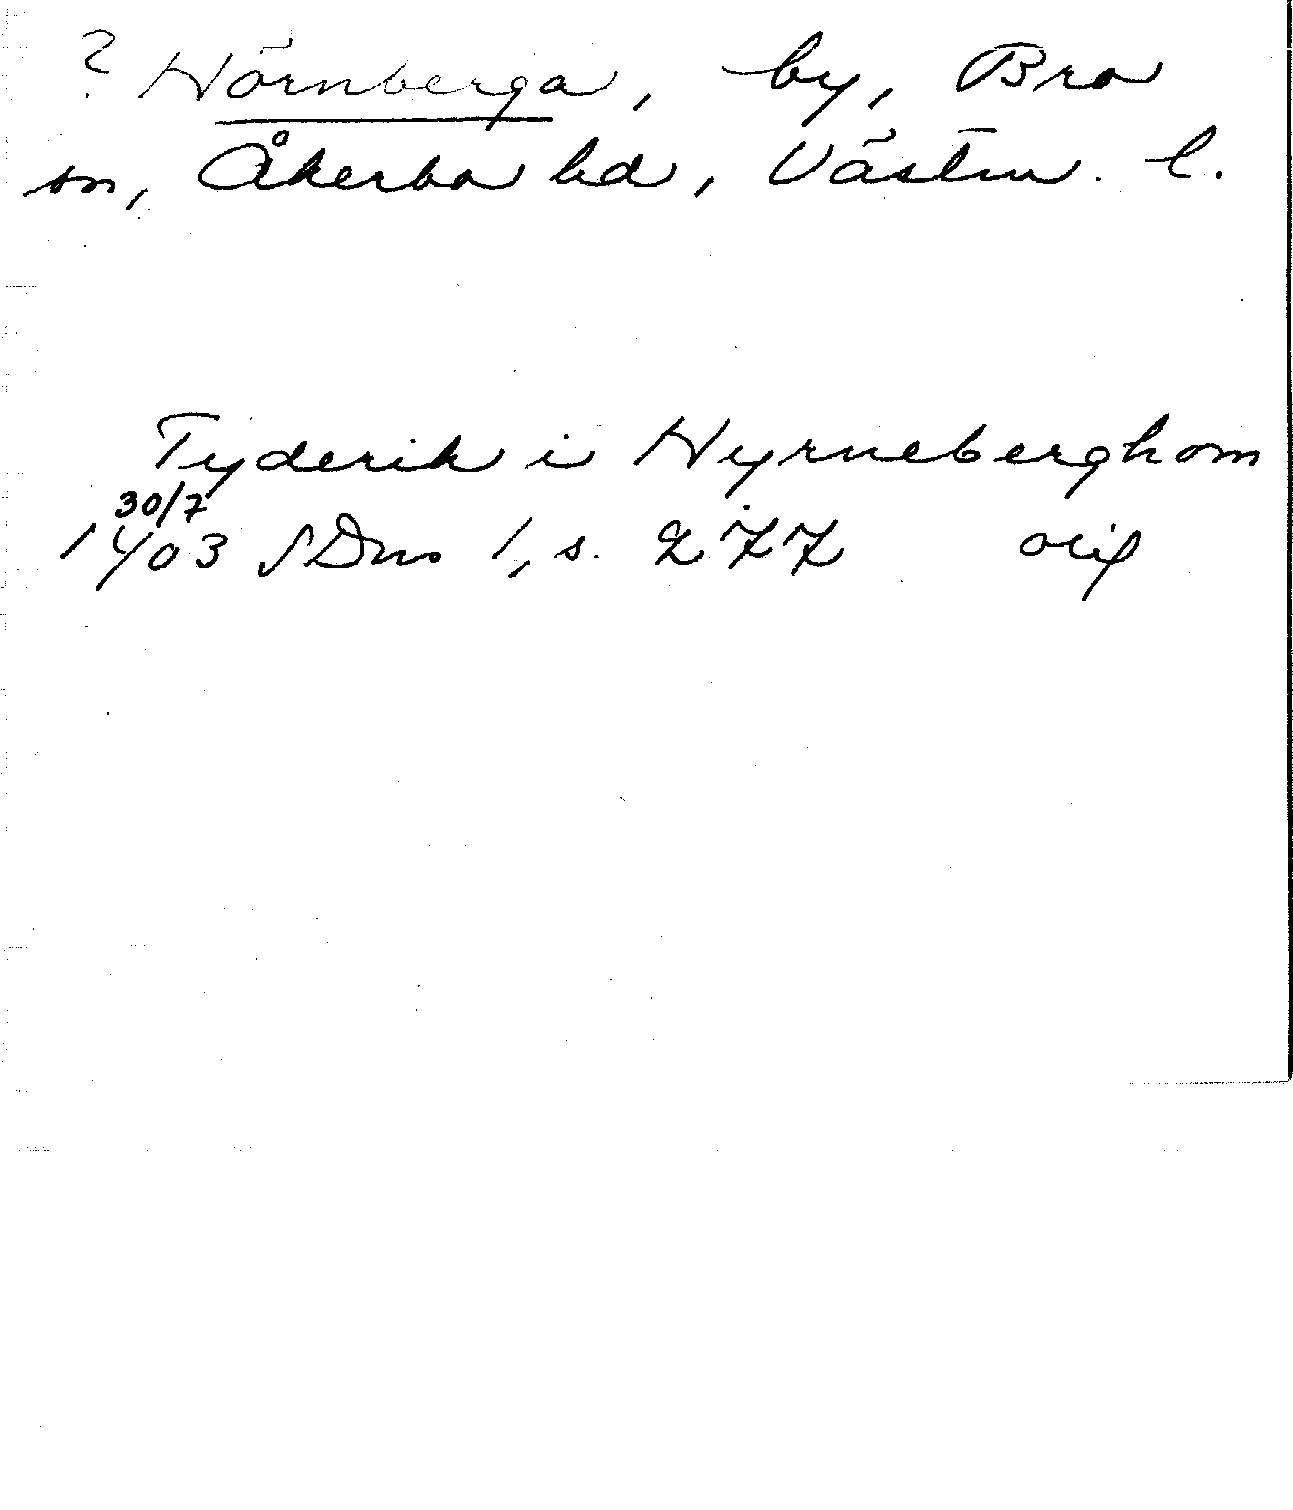 ? Hörnberga, by, Bro
sn, Åkerbo hd, Västm. l.
Tyderik i Hyrneberghom
30/7
1403 SDns 1, s. 277 orig